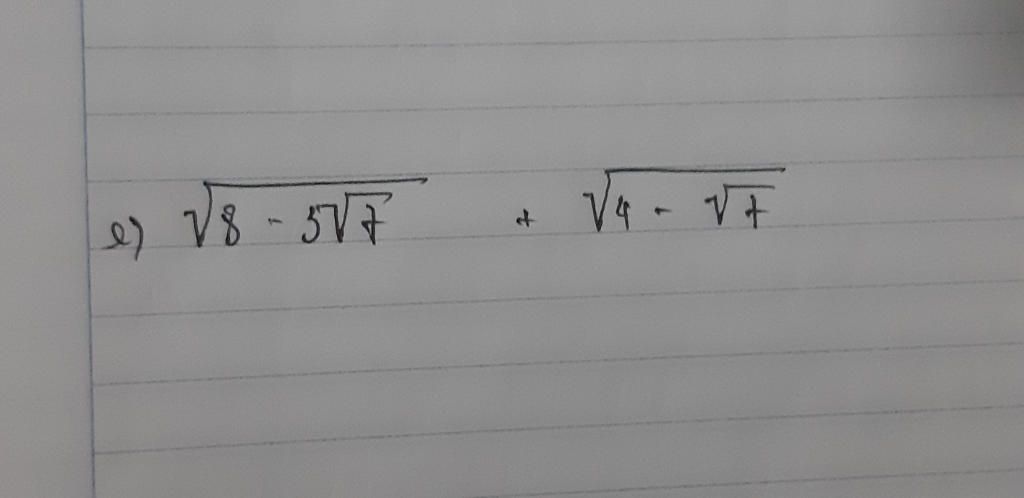 e) √(8 - 3√7) + √(4 - √7)